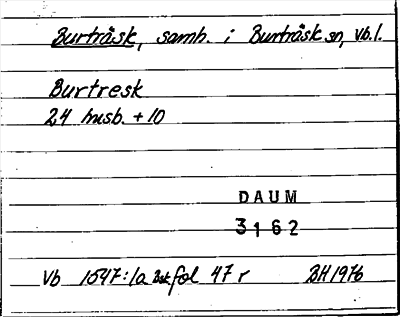 Burträsk, samh. i Burträsk sn, Vb. l.
Burtresk
24 husb. + 10
DAUM
3162
Vb 1547:1a fol 47 r BH 1976